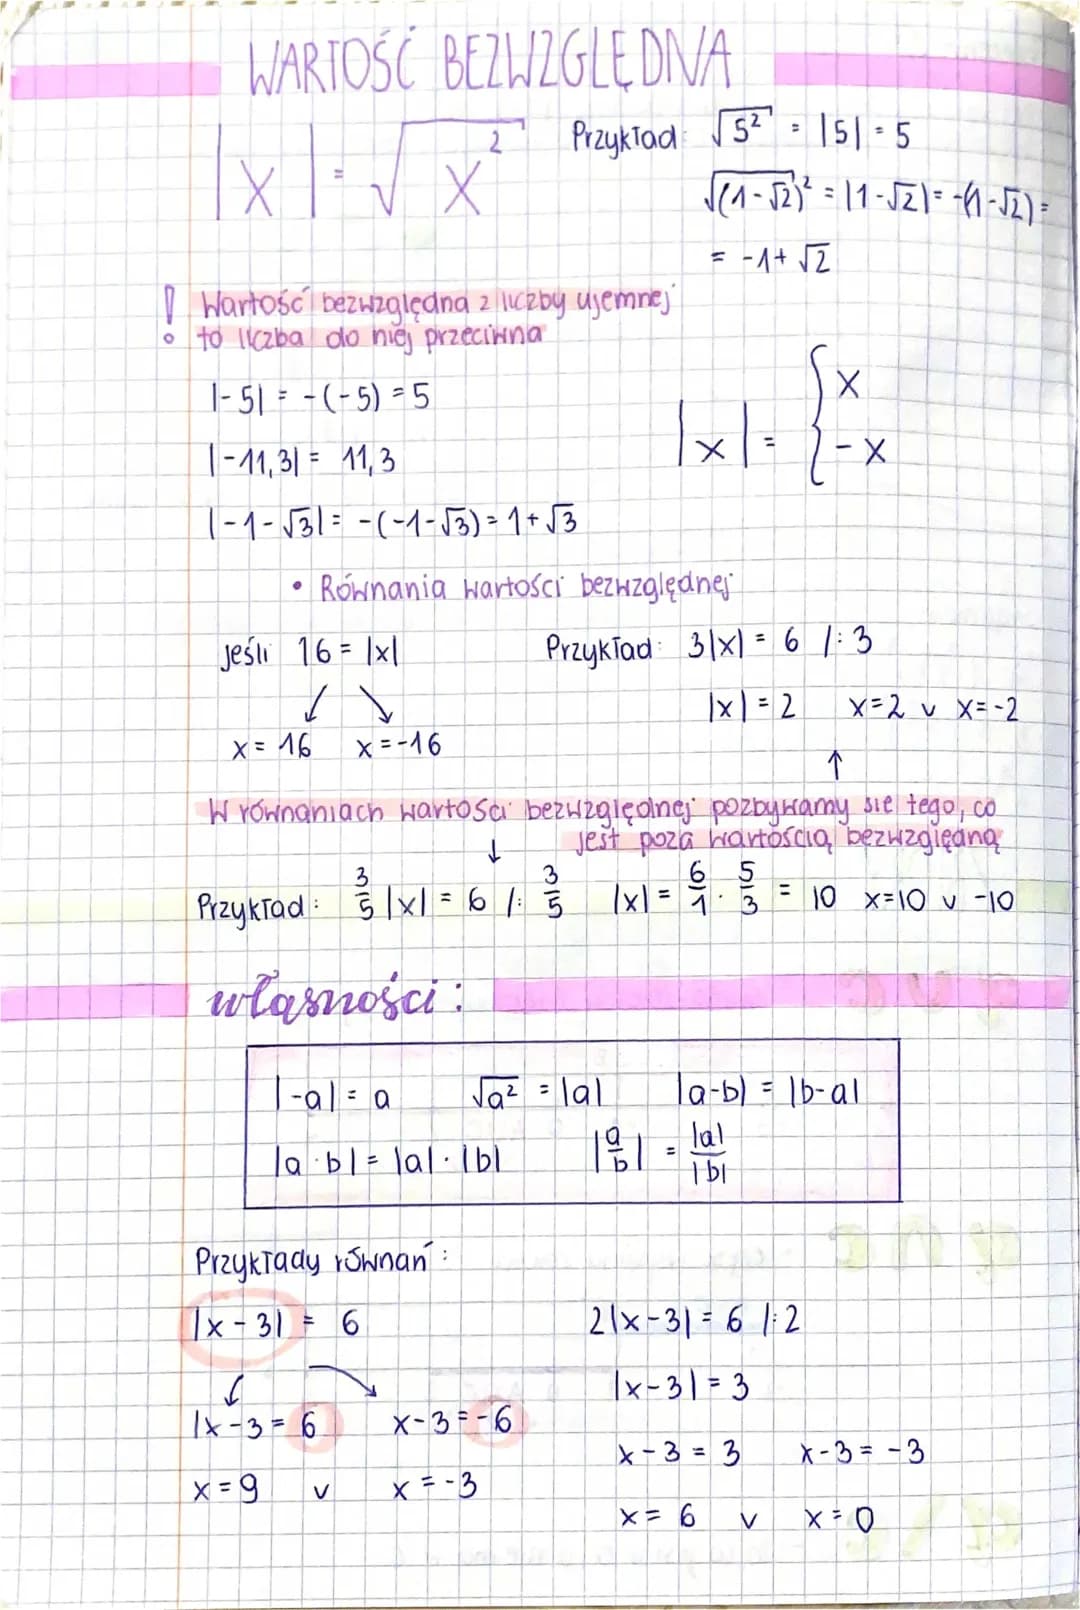 WARTOŚĆ BEZWZGLĘDNA
|x| = √x²
Przykład: √5² = |5| = 5
√(1-√2)² = |1-√2| = -(1-√2) =
= -1+√2
! Wartość bezwzględna z liczby ujemnej
to liczba do niej przeciwna
|-5| = -(-5) = 5
|-11,3| = 11,3
|-1-√3| = -(-1-√3) = 1+√3
|x| = { x
-x
• Równania wartości bezwzględnej
Jeśli 16 = |x|
↙ ↘
x = 16 x = -16
Przykład: 3|x| = 6 /:3
|x| = 2 x=2 v x=-2
↑
W równaniach wartości bezwzględnej pozbywamy się tego, co
jest poza wartością bezwzględną
↓
Przykład: 3/5 |x| = 6 /: 3/5 |x| = 6/1 · 5/3 = 10 x=10 v -10
własności:
|-a| = a √a² = |a| |a-b| = |b-a|
|a·b| = |a|·|b| |a/b| = |a|/|b|
Przykłady równań:
|x-3| = 6
↙ ↘
|x-3 = 6 x-3 = -6
x = 9 v x = -3
2|x-3| = 6 /:2
|x-3| = 3
x-3 = 3 x-3 = -3
x = 6 v x = 0